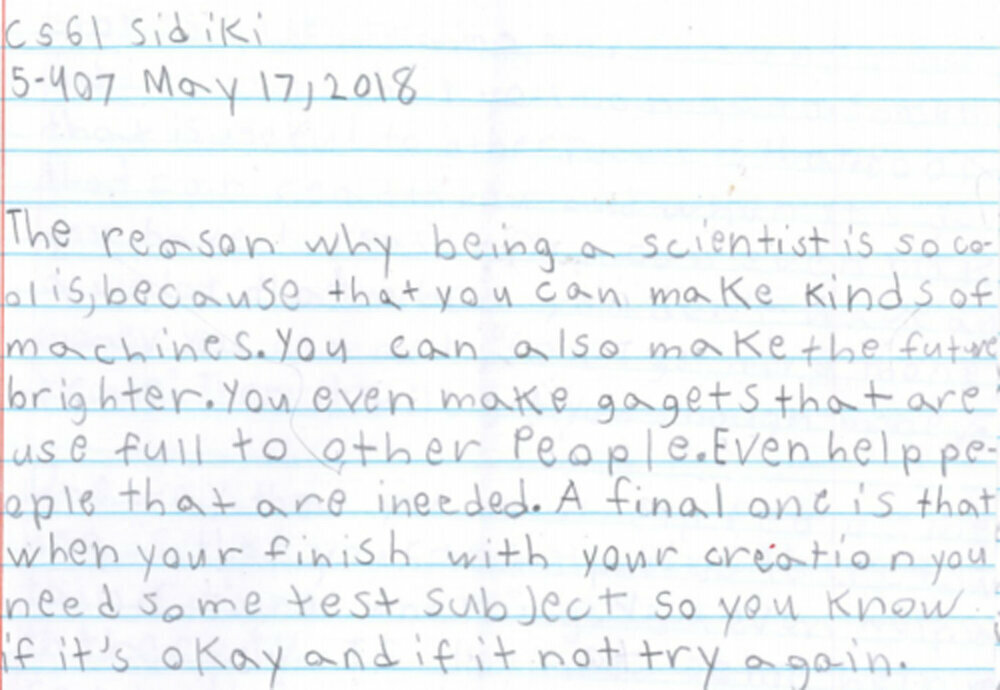 cs61 sidiki
5-407 May 17, 2018
The reason why being a scientist is so co-
ol is, because that you can make kinds of
machines. You can also make the future
brighter. You even make gagets that are
use full to other People. Even help pe-
ople that are ineeded. A final one is that
when your finish with your creation you
need some test subject so you know
if it's okay and if it not try again.